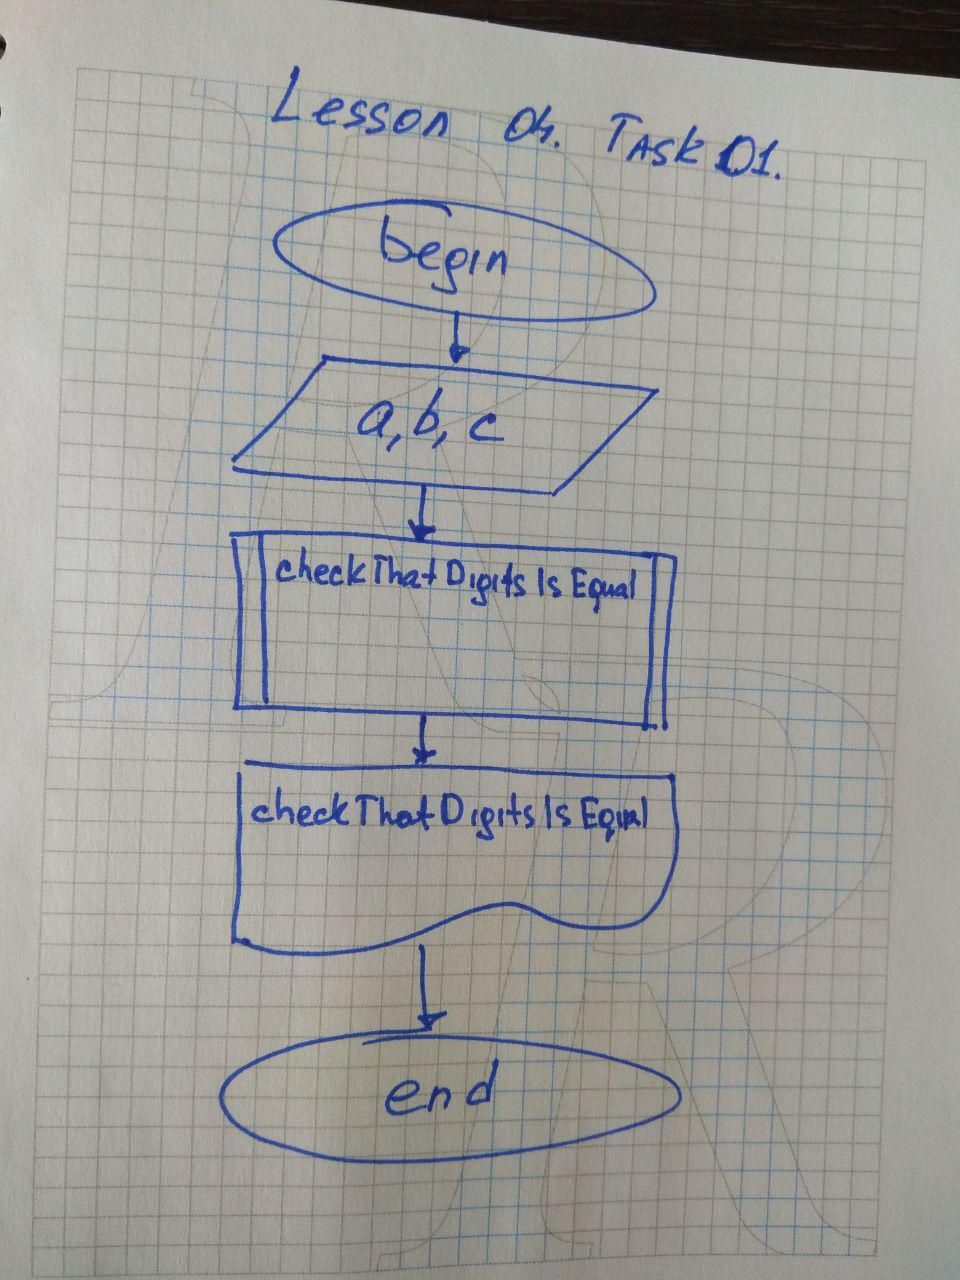 Lesson 04. Task 01.
begin
a, b, c
checkThatDigitsIsEqual
checkThatDigitsIsEqual
end